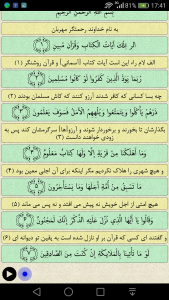 17:41
بِسْمِ اللهِ الرَّحْمَنِ الرَّحِيمِ
به نام خداوند رحمتگر مهربان
الر تِلْكَ آيَاتُ الْكِتَابِ وَقُرْآنٍ مُبِينٍ ﴿۱﴾
الف لام راء این است آیات کتاب [آسمانی] و قرآن روشنگر (۱)
رُبَمَا يَوَدُّ الَّذِينَ كَفَرُوا لَوْ كَانُوا مُسْلِمِينَ ﴿۲﴾
چه بسا کسانی که کافر شدند آرزو کنند که کاش مسلمان بودند (۲)
ذَرْهُمْ يَأْكُلُوا وَيَتَمَتَّعُوا وَيُلْهِهِمُ الْأَمَلُ فَسَوْفَ يَعْلَمُونَ ﴿۳﴾
بگذارشان تا بخورند و برخوردار شوند و آرزو[ها] سرگرمشان کند پس به
زودی خواهند دانست (۳)
وَمَا أَهْلَكْنَا مِنْ قَرْيَةٍ إِلَّا وَلَهَا كِتَابٌ مَعْلُومٌ ﴿۴﴾
و هیچ شهری را هلاک نکردیم مگر اینکه برای آن اجلی معین بود (۴)
مَا تَسْبِقُ مِنْ أُمَّةٍ أَجَلَهَا وَمَا يَسْتَأْخِرُونَ ﴿۵﴾
هیچ امتی از اجل خویش نه پیش می افتد و نه پس می ماند (۵)
وَقَالُوا يَا أَيُّهَا الَّذِي نُزِّلَ عَلَيْهِ الذِّكْرُ إِنَّكَ لَمَجْنُونٌ ﴿۶﴾
و گفتند ای کسی که قرآن بر او نازل شده است به یقین تو دیوانه ای (۶)
لَوْ مَا تَأْتِينَا بِالْمَلَائِكَةِ إِنْ كُنْتَ مِنَ الصَّادِقِينَ ﴿۷﴾